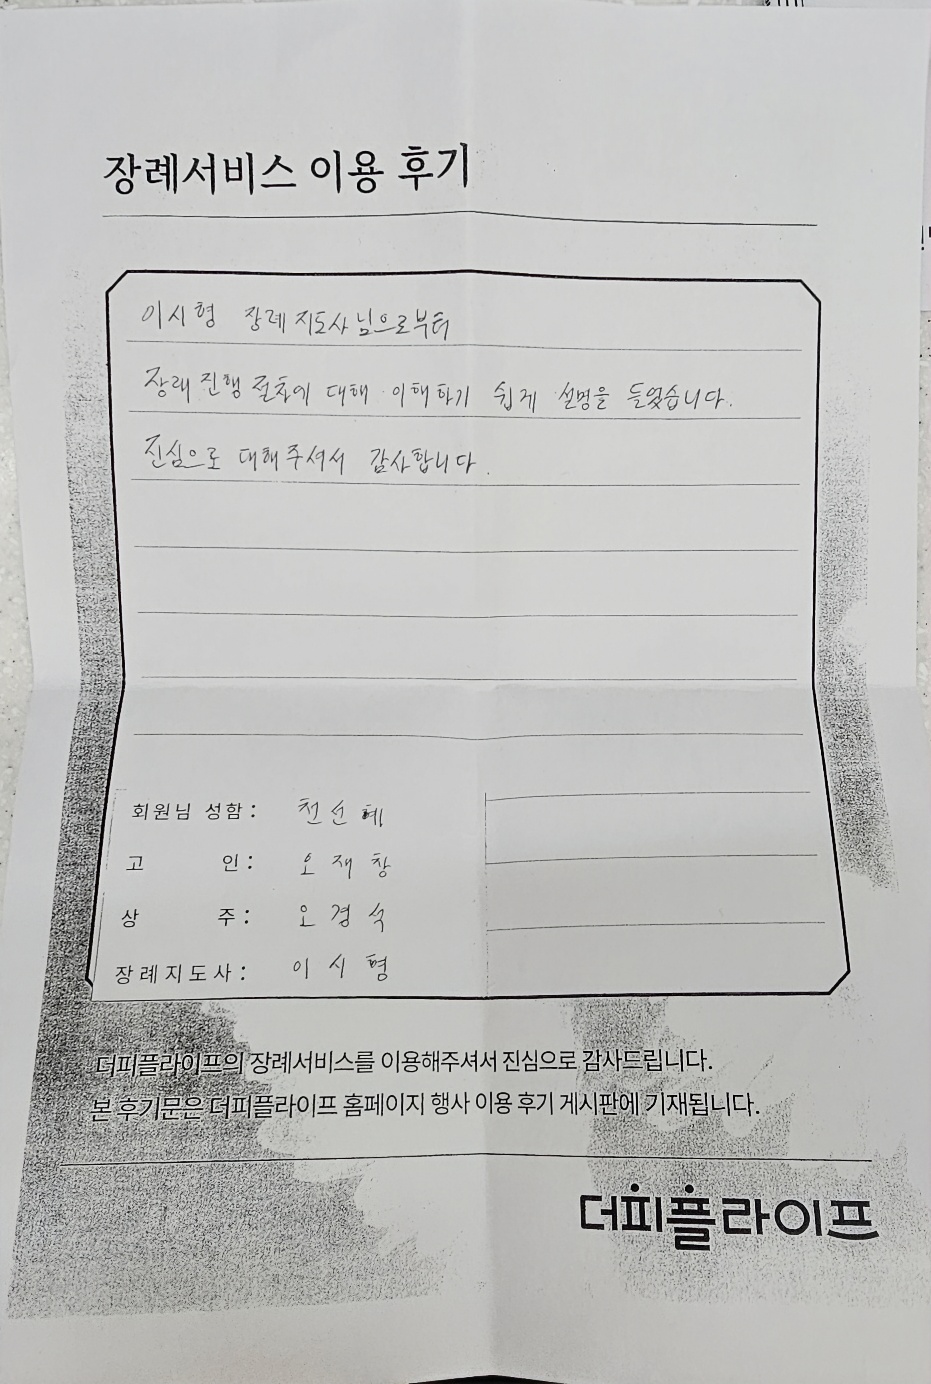 장례서비스 이용 후기
이시형 장례지도사님으로부터
장례 진행 절차에 대해 이해하기 쉽게 설명을 들었습니다.
진심으로 대해주셔서 감사합니다.
회원님 성함: 천선혜
고 인: 오재창
상 주: 오경숙
장례지도사: 이시형
더피플라이프의 장례서비스를 이용해주셔서 진심으로 감사드립니다.
본 후기문은 더피플라이프 홈페이지 행사 이용 후기 게시판에 기재됩니다.
더피플라이프